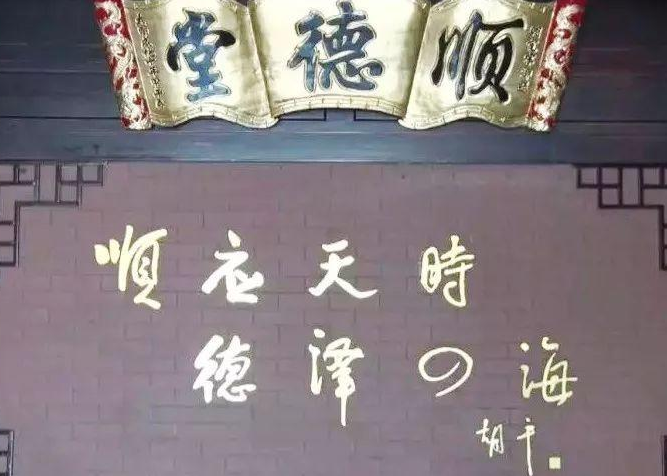 顺德堂
順应天時
德澤四海
胡平